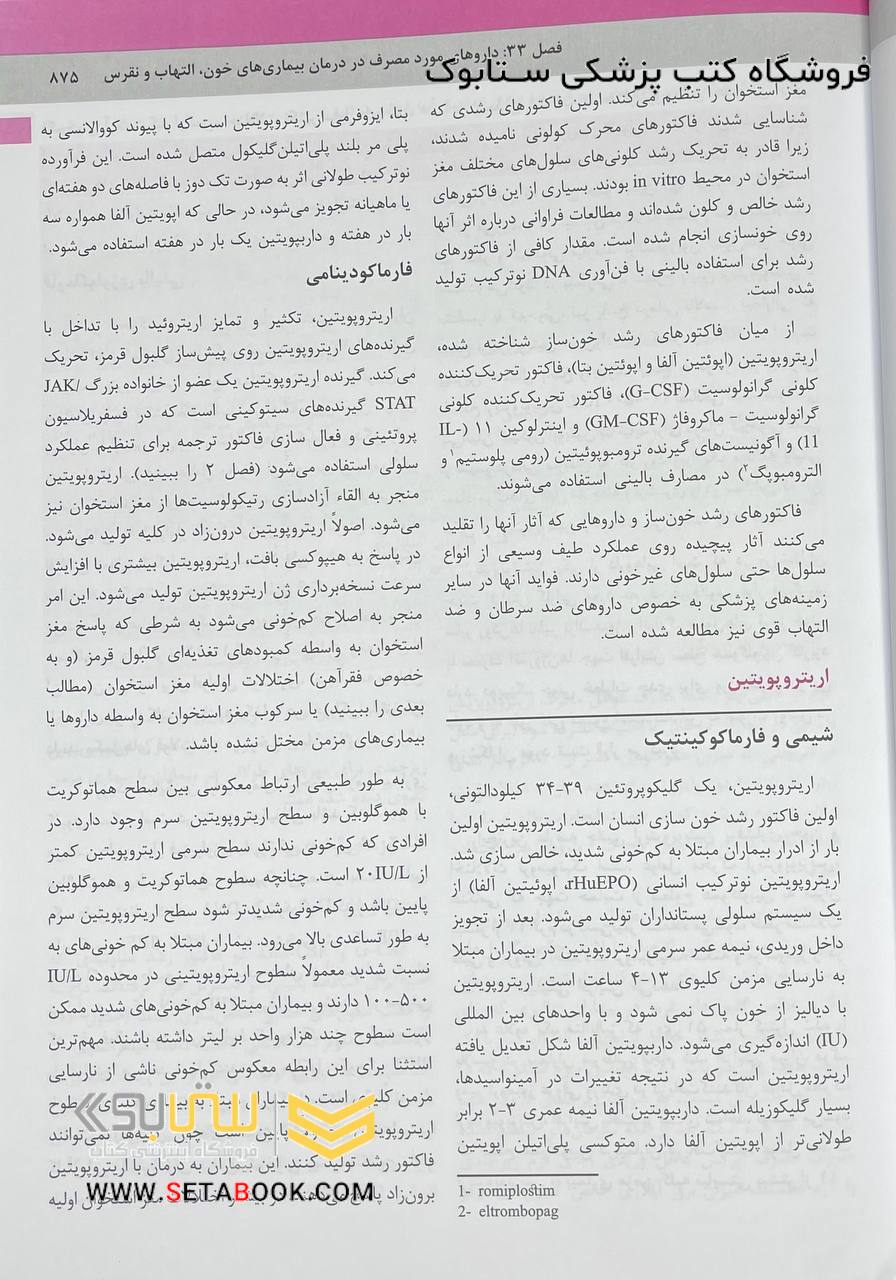 فصل ۳۳: داروهای مورد مصرف در درمان بیماری‌های خون، التهاب و نقرس ۸۷۵
فروشگاه کتب پزشکی ستابوک
مغز استخوان را تنظیم می‌کند. اولین فاکتورهای رشدی که
شناسایی شدند فاکتورهای محرک کولونی نامیده شدند،
زیرا قادر به تحریک رشد کلونی‌های سلول‌های مختلف مغز
استخوان در محیط in vitro بودند. بسیاری از این فاکتورهای
رشد خالص و کلون شده‌اند و مطالعات فراوانی درباره اثر آنها
روی خونسازی انجام شده است. مقدار کافی از فاکتورهای
رشد برای استفاده بالینی با فن‌آوری DNA نوترکیب تولید
شده است.
از میان فاکتورهای رشد خون‌ساز شناخته شده،
اریتروپویتین (اپوئتین آلفا و اپوئتین بتا)، فاکتور تحریک‌کننده
کلونی گرانولوسیت (G-CSF)، فاکتور تحریک‌کننده کلونی
گرانولوسیت - ماکروفاژ (GM-CSF) و اینترلوکین ۱۱ (IL-
11) و آگونیست‌های گیرنده ترومبوپوئیتین (رومی پلوستیم۱ و
الترومبوپگ۲) در مصارف بالینی استفاده می‌شوند.
فاکتورهای رشد خون‌ساز و داروهایی که آثار آنها را تقلید
می‌کنند آثار پیچیده روی عملکرد طیف وسیعی از انواع
سلول‌ها حتی سلول‌های غیرخونی دارند. فواید آنها در سایر
زمینه‌های پزشکی به خصوص داروهای ضد سرطان و ضد
التهاب قوی نیز مطالعه شده است.
اریتروپویتین
شیمی و فارماکوکینتیک
اریتروپویتین، یک گلیکوپروتئین ۳۹-۳۴ کیلودالتونی،
اولین فاکتور رشد خون سازی انسان است. اریتروپویتین اولین
بار از ادرار بیماران مبتلا به کم‌خونی شدید، خالص سازی شد.
اریتروپویتین نوترکیب انسانی (rHuEPO، اپوئیتین آلفا) از
یک سیستم سلولی پستانداران تولید می‌شود. بعد از تجویز
داخل وریدی، نیمه عمر سرمی اریتروپویتین در بیماران مبتلا
به نارسایی مزمن کلیوی ۱۳-۴ ساعت است. اریتروپویتین
با دیالیز از خون پاک نمی شود و با واحدهای بین المللی
(IU) اندازه‌گیری می‌شود. داربپویتین آلفا شکل تعدیل یافته
اریتروپویتین است که در نتیجه تغییرات در آمینواسیدها،
بسیار گلیکوزیله است. داربپویتین آلفا نیمه عمری ۳-۲ برابر
طولانی‌تر از اپویتین آلفا دارد. متوکسی پلی‌اتیلن اپویتین
1- romiplostim
2- eltrombopag
بتا، ایزوفرمی از اریتروپویتین است که با پیوند کووالانسی به
پلی مر بلند پلی‌اتیلن‌گلیکول متصل شده است. این فرآورده
نوترکیب طولانی اثر به صورت تک دوز با فاصله‌های دو هفته‌ای
یا ماهیانه تجویز می‌شود، در حالی که اپویتین آلفا همواره سه
بار در هفته و داربپویتین یک بار در هفته استفاده می‌شود.
فارماکودینامی
اریتروپویتین، تکثیر و تمایز اریتروئید را با تداخل با
گیرنده‌های اریتروپویتین روی پیش‌ساز گلبول قرمز، تحریک
می‌کند. گیرنده اریتروپویتین یک عضو از خانواده بزرگ JAK/
STAT گیرنده‌های سیتوکینی است که در فسفریلاسیون
پروتئینی و فعال سازی فاکتور ترجمه برای تنظیم عملکرد
سلولی استفاده می‌شود (فصل ۲ را ببینید). اریتروپویتین
منجر به القاء آزادسازی رتیکولوسیت‌ها از مغز استخوان نیز
می‌شود. اصولاً اریتروپویتین درون‌زاد در کلیه تولید می‌شود.
در پاسخ به هیپوکسی بافت، اریتروپویتین بیشتری با افزایش
سرعت نسخه‌برداری ژن اریتروپویتین تولید می‌شود. این امر
منجر به اصلاح کم‌خونی می‌شود به شرطی که پاسخ مغز
استخوان به واسطه کمبودهای تغذیه‌ای گلبول قرمز (و به
خصوص فقرآهن) اختلالات اولیه مغز استخوان (مطالب
بعدی را ببینید) یا سرکوب مغز استخوان به واسطه داروها یا
بیماری‌های مزمن مختل نشده باشد.
به طور طبیعی ارتباط معکوسی بین سطح هماتوکریت
با هموگلوبین و سطح اریتروپویتین سرم وجود دارد. در
افرادی که کم‌خونی ندارند سطح سرمی اریتروپویتین کمتر
از ۲۰IU/L است. چنانچه سطوح هماتوکریت و هموگلوبین
پایین باشد و کم‌خونی شدیدتر شود سطح اریتروپویتین سرم
به طور تصاعدی بالا می‌رود. بیماران مبتلا به کم خونی‌های به
نسبت شدید معمولاً سطوح اریتروپویتینی در محدوده IU/L
۱۰۰-۵۰۰ دارند و بیماران مبتلا به کم‌خونی‌های شدید ممکن
است سطوح چند هزار واحد بر لیتر داشته باشند. مهم‌ترین
استثنا برای این رابطه معکوس کم‌خونی ناشی از نارسایی
مزمن کلیوی است.
اریتروپویتین پایین است چون نمی‌توانند
فاکتور رشد تولید کنند. این بیماران به درمان با اریتروپویتین
برون‌زاد پاسخ می‌دهند. مغز استخوان اولیه
ستابوک
فروشگاه اینترنتی کتاب
WWW.SETABOOK.COM